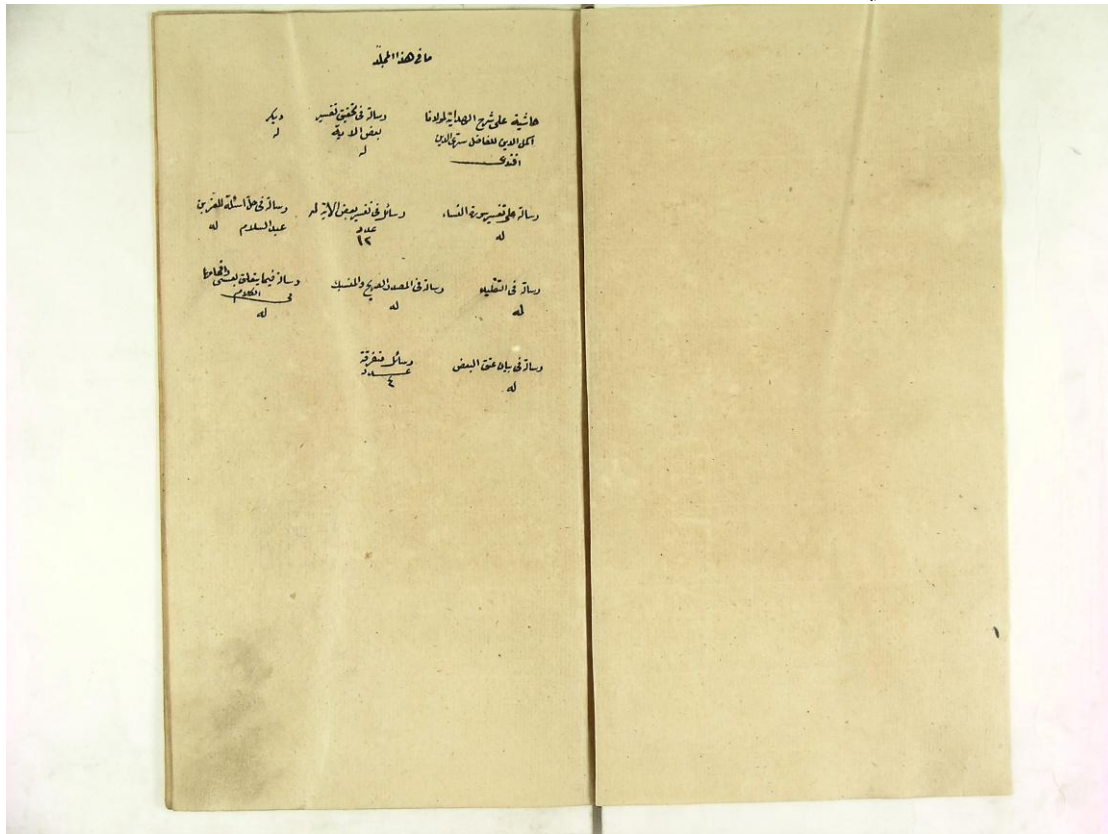 ما فى هذا المجلد
حاشية على شرح الهداية لمولانا
اكمل الدين للفاضل سرى الدين
افندى
رسالة فى تحقيق تفسير
بعض الاية
له
ديكر
له
رسالة على تفسير سورة النساء
له
رسائل فى تفسير بعض الاية له
عدد
١٢
رسالة فى حل اسئلة للعز بن
عبد السلام له
رسالة فى التقليد
له
رسالة فى المصدر الصريح والمنسبك
له
رسالة فيما يتعلق بعسى
فى الكلام
له
رسالة فى بيان عتق البعض
له
رسائل متفرقة
عدد
٤